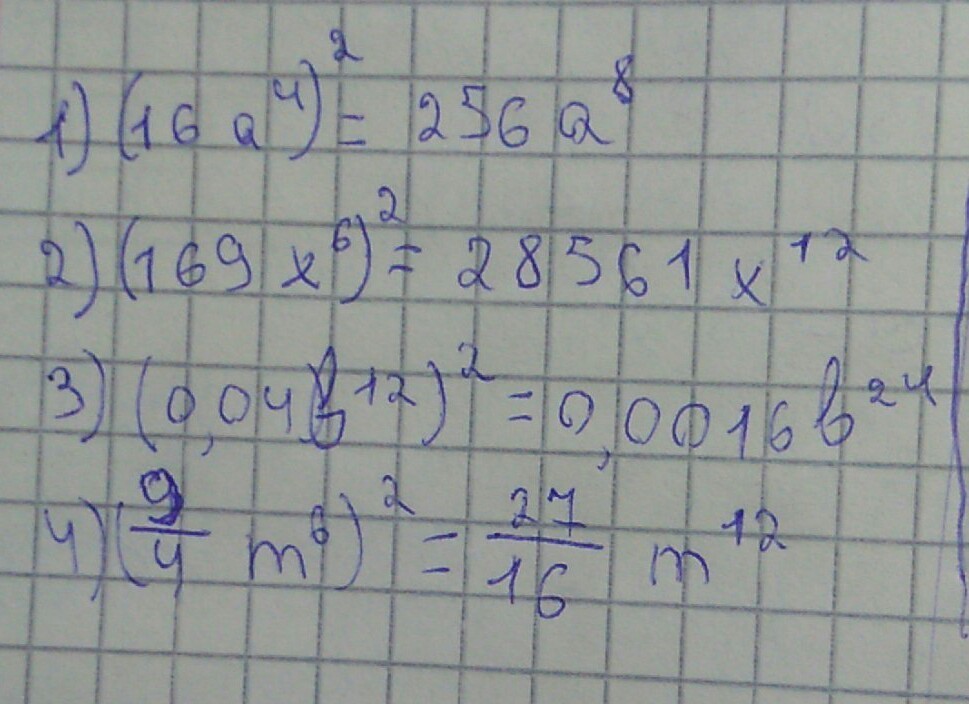 1) (16 a⁴)² = 256 a⁸
2) (169 x⁶)² = 28561 x¹²
3) (0,04 b¹²)² = 0,0016 b²⁴
4) (9/4 m⁶)² = 27/16 m¹²